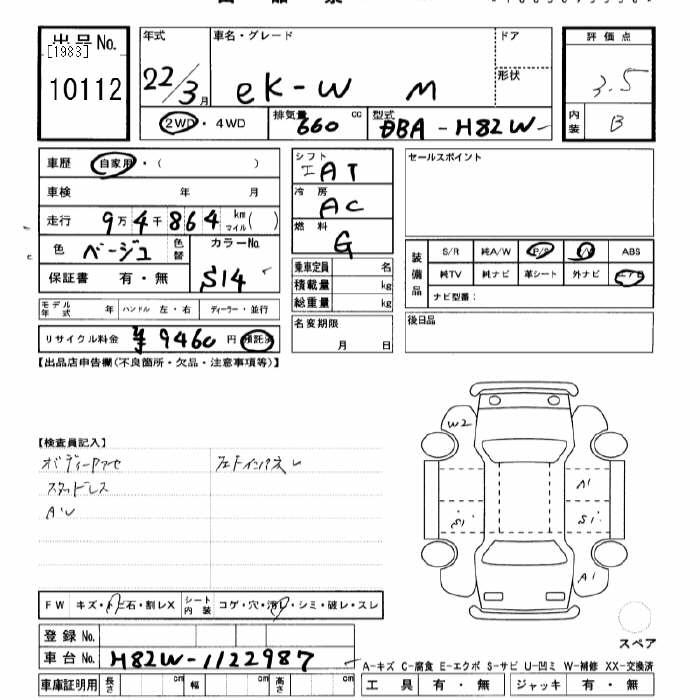 出品票
出品 No.
[1983]
10112
年式 車名・グレード ドア
22/3月 eK-W M 形状
2WD・4WD 排気量 660 cc 型式 DBA-H82W
評価点
3.5
内装 B
車歴 自家用・( )
車検 年 月
走行 9万4千864 km マイル( )
色 ベージュ 色替 カラーNo. S14
保証書 有・無
モデル年式 年 ハンドル 左・右 ディーラー・並行
リサイクル料金 ¥9460 円 預託済
シフト AT
冷房 AC
燃料 G
乗車定員 名
積載量 kg
総重量 kg
名変期限
月 日
セールスポイント
装備品 S/R 純A/W P/S P/W ABS
純TV 純ナビ 革シート 外ナビ エアB
ナビ型番:
後日品
【出品店申告欄(不良箇所・欠品・注意事項等)】
【検査員記入】
スタッドレス
W2
A1
S1
S1
A1
スペア
FW キズ・トビ石・割レX シート内装 コゲ・穴・汚レ・シミ・破レ・スレ
登録 No.
車台 No. H82W-1122987
車庫証明用 長さ cm 幅 cm 高さ cm
A-キズ C-腐食 E-エクボ S-サビ U-凹ミ W-補修 XX-交換済
工具 有・無 ジャッキ 有・無